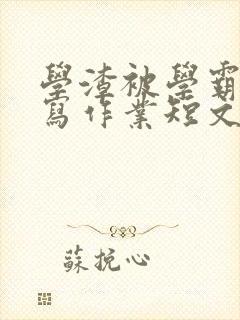 學渣被學霸
寫作業短文
蘇挽心